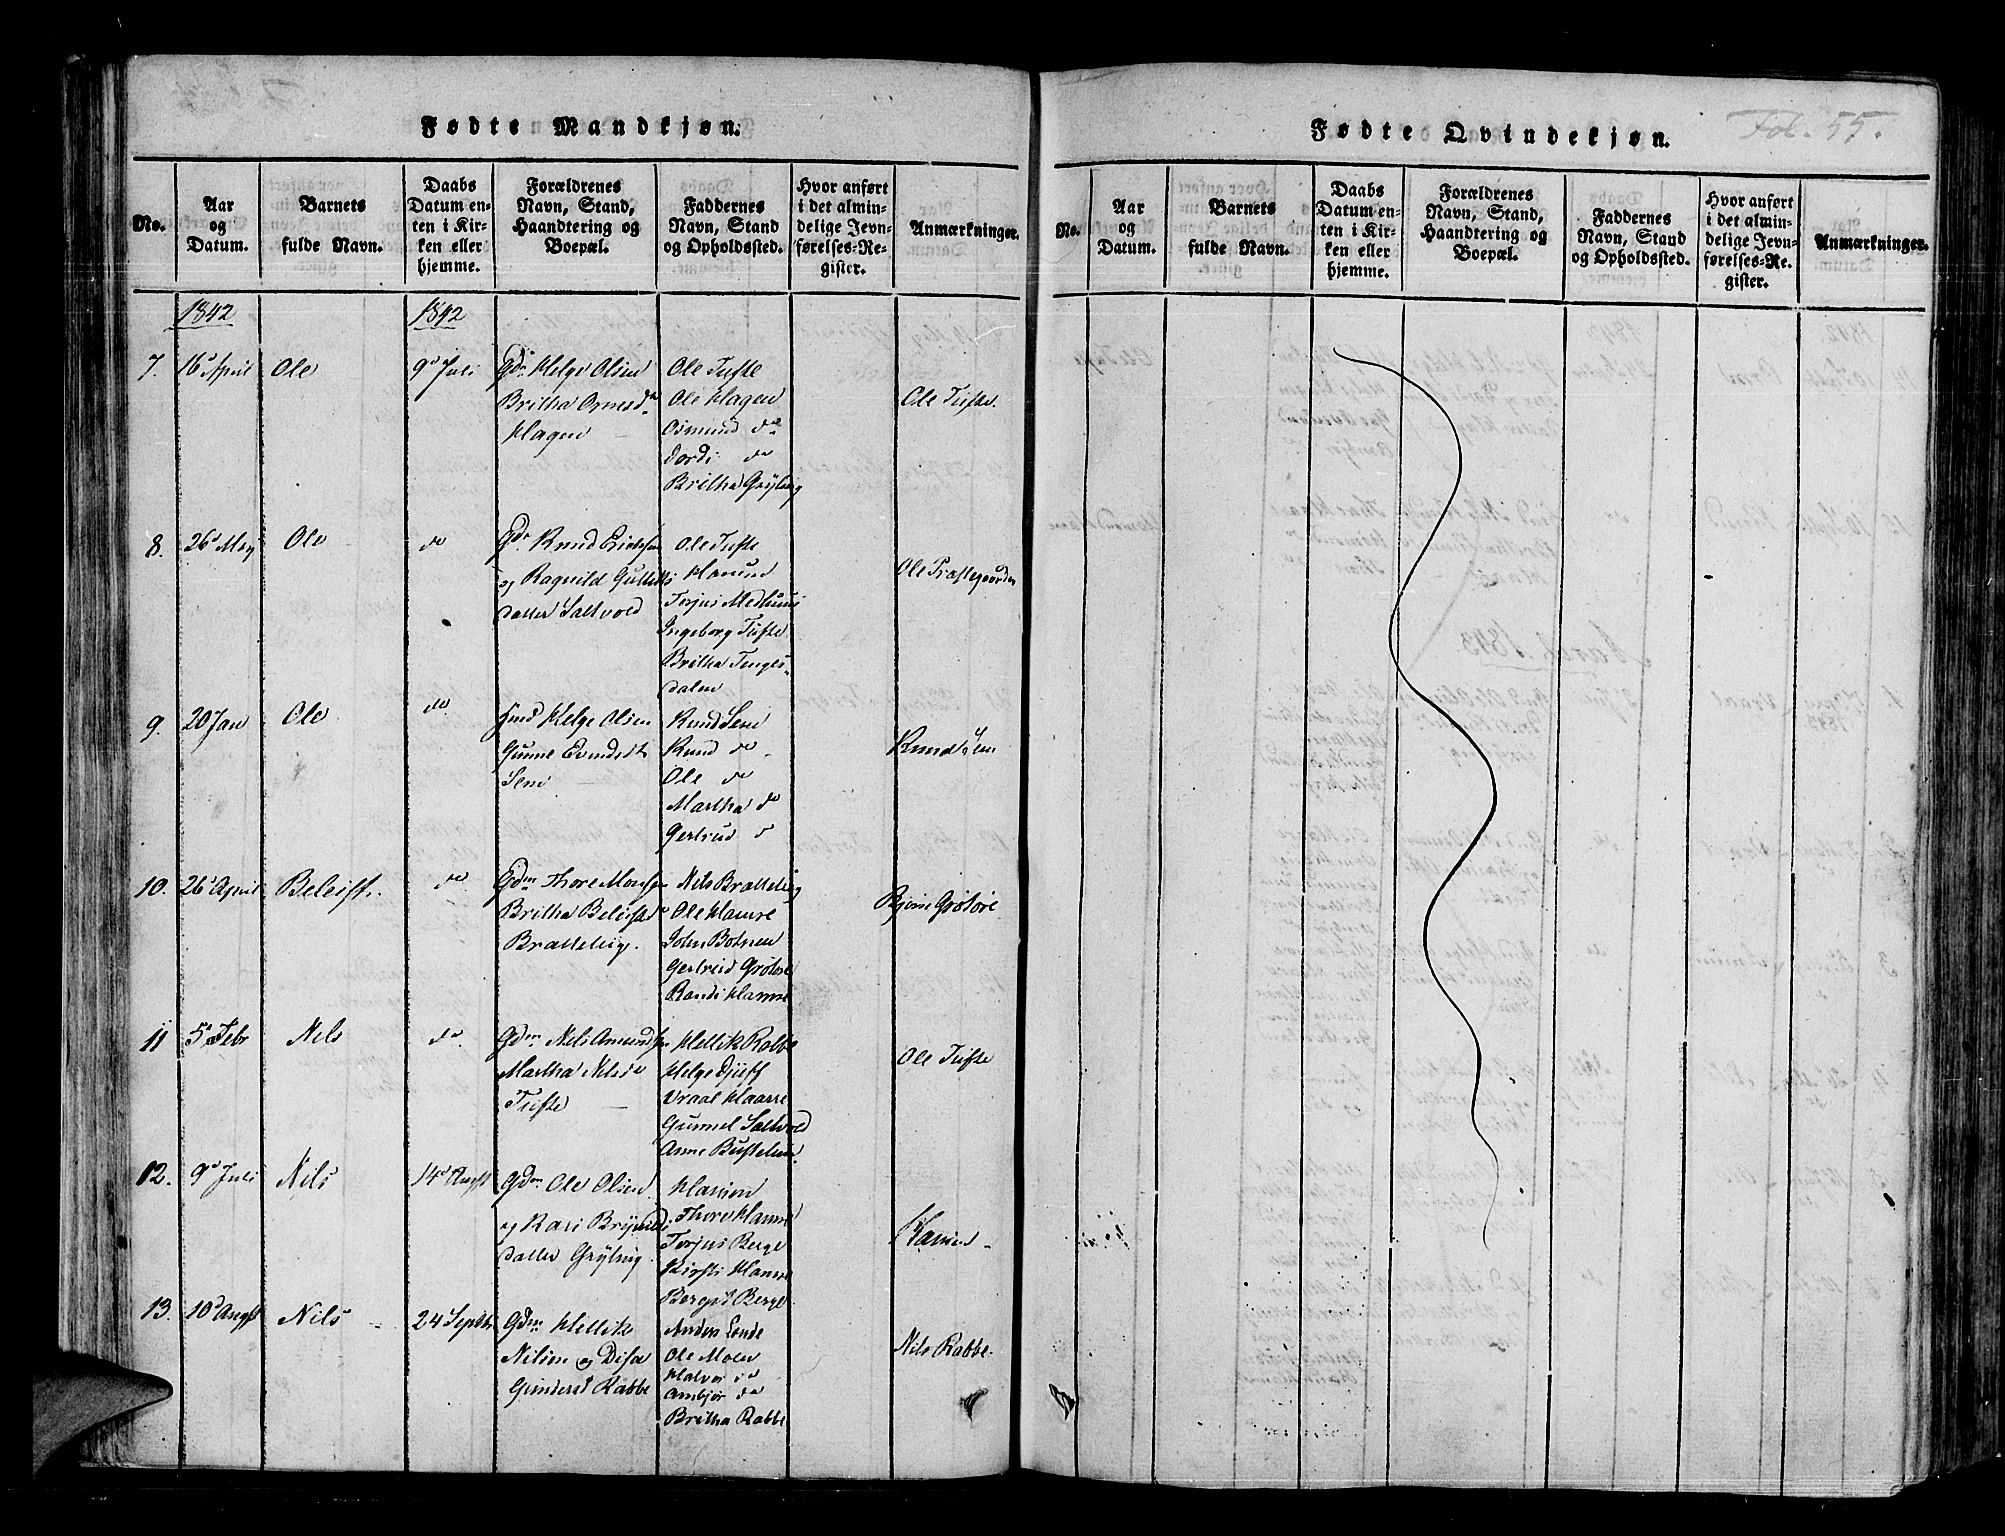 Fødte Mandkjøn.
No.
Aar og Datum.
Barnets fulde Navn.
Daabs Datum enten i Kirken eller hjemme.
Forældrenes Navn, Stand, Haandtering og Boepæl.
Faddernes Navn, Stand og Opholdssted.
Hvor anført i det almindelige Jevnførelses-Register.
Anmærkninger.
1842
1842
7. 16d April Ole 9d Juli
Gdm Helge Olsen
Britha Ormsd
Hagen
Ole Tufte
Ole Hagen
Osmund do
Dordi do
Britha Grÿting
Ole Tufte.
8. 26d May Ole do
Gdm Knud Erichsen
og Ragnild Gulleiks
datter Saltvold
Ole Tufte
Torjus Medhuus
Ingeborg Tufte
Britha Tenges-
dalen
Ole Præstegaarden
9. 20 Jan Ole do
Helge Olsen
Gunne Evindsdt
Lene
Knud Lene
Knud do
Ole do
Martha do
Gertrud d
Knud Lene
10. 26d April Beleiff. do
Gdm Thore Monsen
Britha Beleifsd
Brattelig.
Nils Brattelig
Ole Hamre
John Botnen
Gertrud Grøtøre
Randi Hamre
Bjørne Grøtøre
11 5d Febr Nils do.
Gdm Nils Amundsen
Martha Nilsd
Tufte
Hellik Rabbe
Helge Djuff
Vraal Haarre
Gunnel Saltvold
Anne Bustelien
Ole Tufte
12. 9d Juli Nils 14d Augst
Gdm Ole Olsen
og Kari Brÿnilds
datter Grÿting
Thore Hamre
Torjus Berge
Kirsti Hamre
Bergit Berge
13. 10d Augst Nils 24 Septbr
Gdm Hellik
Nilsen og Disa
Gundersd Rabbe
Anders Lende
Ole Moen
Halvor do
Ambjør do
Britha Rabbe
Nils Rabbe.
Fødte Qvindekjøn.
Fol. 55.
No.
Aar og Datum.
Barnets fulde Navn.
Daabs Datum enten i Kirken eller hjemme.
Forældrenes Navn, Stand, Haandtering og Boepæl.
Faddernes Navn, Stand og Opholdssted.
Hvor anført i det almindelige Jevnførelses-Register.
Anmærkninger.